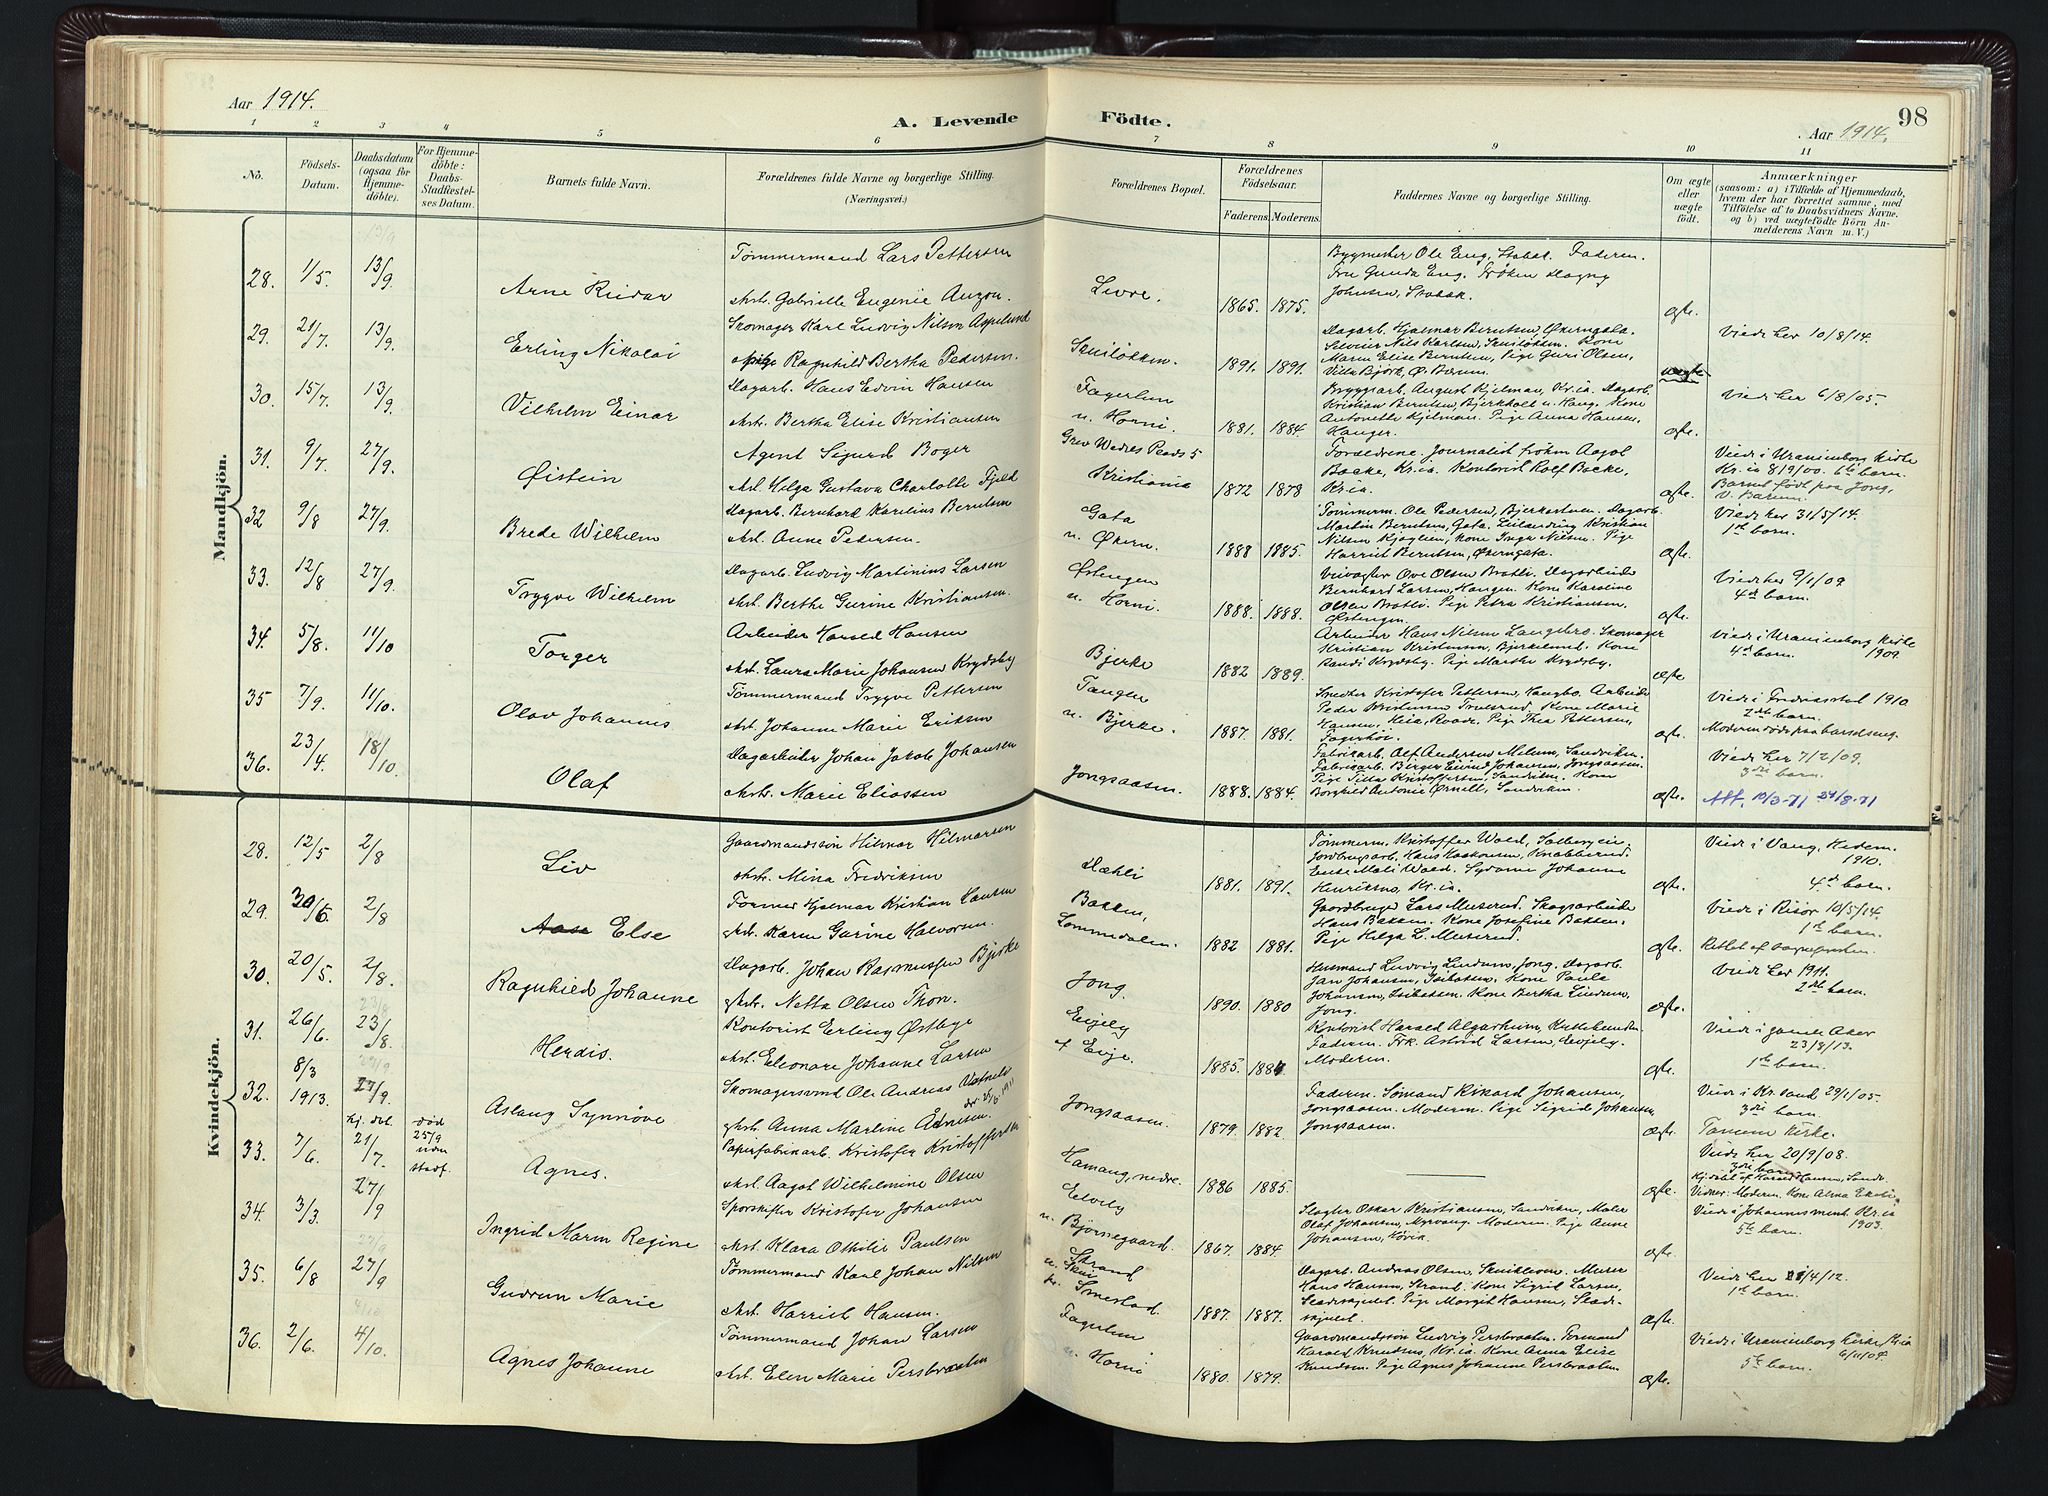 Aar 1914.
A. Levende
Födte.
98
Aar 1914.
1 2 3 4 5 6 7 8 9 10 11
No.
Födsels-
Datum.
Daabsdatum
(ogsaa for
Hjemme-
döbte).
For Hjemme-
döbte:
Daabs-
Stadfæstel-
ses Datum.
Barnets fulde Navn.
Forældrenes fulde Navne og borgerlige Stilling.
(Næringsvei.)
Forældrenes Bopæl.
Forældrenes
Födselsaar.
Faderens. Moderens.
Faddernes Navne og borgerlige Stilling.
Om ægte
eller
uægte
födt.
Anmærkninger
(saasom: a) i Tilfælde af Hjemmedaab,
hvem der har forrettet samme, med
Tilföielse af to Daabsvidners Navne,
og b) ved uægtefödte Börn An-
melderens Navn m. V.)
Mandkjön.
28. 1/5. 13/9. Arne Reidar
Tømmermand Lars Pettersen
Gabrielle Eugenie
1865. 1875.
Bygmester Ole Eng, Stabæk. Faderen.
Fru Gunda Eng. Frøken Dagny
Johnsen, Stabæk.
ægte.
29. 21/7. 13/9. Erling Nikolai
Skomager Karl Ludvig Nilsen Aspelund
Pige Ragnhild Bertha Pedersen.
1891. 1891.
Dagarb. Hjalmar Berntsen, Økerngata.
Nils Karlsen, Kone
Maren Elise Berntsen, Pige Guri Olsen,
Villa Björk, Ø. Bærum.
uægte
Viede her 10/8/14.
30. 15/7. 13/9. Vilhelm Einar
Dagarb. Hans Edvin Hansen
Bertha Elise Kristiansen
Fagerlien
u. Horni.
1881. 1884.
Bryggearb. August Kjelman, Kr.ia. Dagarb.
Kristian Berntsen, Bjerkholt u. Haug, Kone
Antonette Kjelman. Pige Anna Hansen,
Hanger.
ægte.
Viede her 6/8/05.
31. 9/7. 27/9. Øistein
Agent Sigurd Boger
Helga Gustava Charlotte Fjeld
Grev Wedels Plads 5
Kristiania
1872 1878
Forældrene. Journalist frøken Aagot
Bakke, Kr.ia. Kontorist Rolf Bakke,
Kr.ia.
ægte.
Viede i Uranienborg kirke
Kr.ia 8/9/00. 6te barn.
Barnet født paa Jong,
V. Bærum.
32 9/8 27/9. Brede Wilhelm
Dagarb. Bernhard Karelius Berntsen
Anne Pedersen.
Gata
u. Økern.
1888 1885.
Tømmerm. Ole Pedersen, Bjerkestuen. Dagarb.
Martin Berntsen, Gata. Leilending Kristian
Nilsen Kjaglien, Kone Inga Nielsen. Pige
Harriet Berntsen, Økerngata.
ægte.
Viede her 31/5/14.
1te barn.
33. 12/8 27/9. Trygve Wilhelm
Dagarb. Ludvig Martinius Larsen
Berthe Gurine Kristiansen.
Østengen
u. Horni.
1888. 1888.
Veivogter Ove Olsen Bratli. Dagarbeider
Bernhard Larsen, Hangen. Kone Karoline
Olsen Bratli. Pige Petra Kristiansen,
Østengen.
ægte.
Viede her 9/1/09.
4de barn.
34. 5/8. 11/10 Torger
Arbeider Harald Hansen
Laura Marie Johansen Krydsby
Bjerke
1882 1889.
Arbeider Hans Nilsen Langebro. Skomager
Kristian Kristiansen, Bjerkelund. Kone
Randi Krydsby. Pige Marthe Krydsby.
ægte
Viede i Uranienborg kirke
4de barn. 1909.
35 7/9. 11/10. Olav Johannes
Tømmermand Trygve Pettersen
Johanne Marie Eriksen
Tanglen
u. Bjerke.
1887. 1881.
Smedker Kristofer Pettersen, Haugbo. Arbeider
Peder Kristiansen Trulsrud, Kone Marie
Hansen, Heia, Roade. Pige Thea Pettersen,
Fagerhøi.
ægte.
Viede i Fredriksstad 1910
2det barn.
Moderen døde paa barselseng.
36. 23/4. 18/10. Olaf
Dagarbeider Johan Jakob Johansen
Marie Eliassen
Jongsaasen.
1888. 1884.
Fabrikarb. Alf Andersen Melum, Sandviken.
Fabrikarb. Birger Eivind Johansen, Jongsaasen.
Pige Tilla Kristoffersen, Sandviken. Kone
Borghild Antonie Ørnell, Sandviken.
ægte.
Viede her 7/2/09.
3die barn.
Att. 12/3-71 24/8-71
Kvindekjön.
28. 12/5 2/8 Liv
Gaardmandssøn Hilmar Hilmarsen
Mina Fredriksen
Dæhli
1881. 1891.
Tømmerm. Kristoffer Wold, Solbergeie.
Jordbrugsarb. Hans Haakonsen, Knabberud.
Enke Mali Wold. Sydame Johanne
Henriksen, Kr.ia.
ægte.
Viede i Vang, Hedem.
1910.
4de barn.
29. 30/5 2/8 Aase Else
Formand Hjalmar Kristian Hansen
Karen Gurine Halvorsen.
Bakken,
Lommedalen.
1882 1881.
Gaardbruger Lars Muserud. Skogsarbeider
Hans Bakken. Kone Josefine Bakken.
Pige Helga L. Muserud.
ægte.
Viede i Risør 10/5/14.
1te barn.
Rettet af sognepresten.
30. 20/5. 2/8. Ragnhild Johanne
Dagarb. Johan Rasmussen Bjerke
Netta Olsen Thon.
Jong.
1890. 1880
Husmand Ludvig Lindum, Jong. Dagarb.
Jan Johansen, Isibakken, Kone Paula
Johansen, Isibakken. Kone Bertha Lindum,
Jong.
ægte.
Viede her 1911.
2det barn.
31. 26/6. 23/8. Herdis.
Kontorist Erling Østbye
Eleonore Johanne Larsen
Evjely
p. Evje.
1885. 1887
Kontorist Harald Algarheim,
Faderen. Frk. Astrid Larsen, Evjely.
Moderen.
ægte.
Viede i gamle Aker
23/8/13.
1te barn.
32. 8/3 1913. 27/9. Aslaug Synnøve
Skomagersvend Ole Andreas
Anna Marline
Jongsaasen.
1879. 1882.
Faderen. Sømand Rikard Johansen,
Jongsaasen. Moderen. Pige Sigrid Johansen
Jongsaasen.
ægte.
Viede i Kr.sand 29/1/05.
3die barn.
kirke.
33. 7/6. hj. døbt 21/7. død 25/9 uden stadf. Agnes.
Papirfabrikarb. Kristofer Kristoffersen
Aagot Wilhelmine Olsen
Hamang, nedre.
1886 1885.
ægte.
Viede her 20/9/08.
3die barn.
Hj.døbt af Harald Hansen, Sandv.
Vidner: Moderen. Kone Anna
34. 3/3. 27/9 Ingrid Maren Regine
Sporskifter Kristofer Johansen
Klara Othilie Paulsen
u. Bjørnegaard.
1867. 1884.
Slagter Oskar Kristiansen, Sandviken, Maler
Olaf Johansen, Myrvang. Moderen. Pige Anne
Johansen,
ægte.
Viede i Johannes menh. Kr.ia
5te barn. 1903.
35. 6/8 27/9 Gudrun Marie
Tømmermand Karl Johan Nilsen
Harriet Hansen.
Strand
Smestad.
1887. 1887.
Dagarb. Andreas Olsen, Skuikleven. Murer
Hans Hansen, Strand. Kone Sigrid Larsen,
Pige Margit Hansen,
ægte.
Viede her 21/4/12.
1te barn.
36. 2/6. 4/10. Agnes Johanne
Tømmermand Johan Larsen
Elen Marie Persbraaten
Fagerlien
u. Horni
1880. 1879.
Gaardmandssøn Ludvig Persbraaten. Formand
Harald Knudsen, Kr.ia. Kone Anna Elise
Knudsen. Pige Agnes Johanne Persbraaten.
ægte.
Viede i Uranienborg Kirke, Kr.ia
6/11/04.
5te barn.